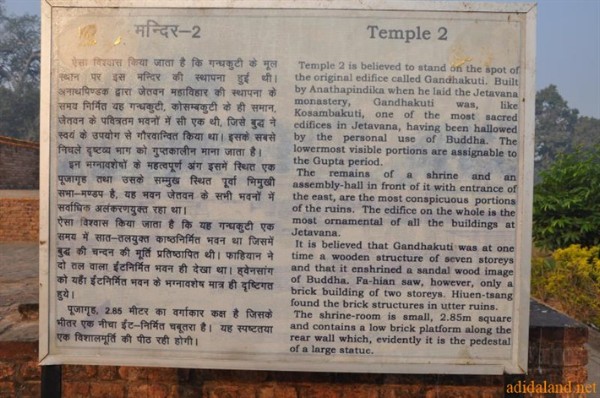 मन्दिर-2
ऐसा विश्वास किया जाता है कि गन्धकुटी के मूल
स्थान पर इस मन्दिर की स्थापना हुई थी।
अनाथपिण्डक द्वारा जेतवन महाविहार की स्थापना के
समय निर्मित यह गन्धकुटी, कोसम्बकुटी के ही समान,
जेतवन के पवित्रतम भवनों में सी एक थी, जिसे बुद्ध ने
स्वयं के उपयोग से गौरवान्वित किया था। इसके सबसे
निचले दृष्टव्य भाग को गुप्तकालीन माना जाता है।
इन भग्नावशेषों के महत्वपूर्ण अंग इसमें स्थित एक
पूजागृह तथा उसके सम्मुख स्थित पूर्वा भिमुखी
सभा-मण्डप है, यह भवन जेतवन के सभी भवनों में
सर्वाधिक अलंकरणयुक्त रहा था।
ऐसा विश्वास किया जाता है कि यह गन्धकुटी एक
समय में सात-तलयुक्त काष्ठनिर्मित भवन था जिसमें
बुद्ध की चन्दन की मूर्ति प्रतिष्ठापित थी। फाहियान ने
दो तल वाला ईंटनिर्मित भवन ही देखा था। हवेनसांग
को यहाँ ईंटनिर्मित भवन के भग्नावशेष मात्र ही दृष्टिगत
हुये।
पूजागृह, 2.85 मीटर का वर्गाकार कक्ष है जिसके
भीतर एक नीचा ईंट-निर्मित चबूतरा है। यह स्पष्टतया
एक विशालमूर्ति की पीठ रही होगी।
Temple 2
Temple 2 is believed to stand on the spot of
the original edifice called Gandhakuti. Built
by Anathapindika when he laid the Jetavana
monastery, Gandhakuti was, like
Kosambakuti, one of the most sacred
edifices in Jetavana, having been hallowed
by the personal use of Buddha. The
lowermost visible portions are assignable to
the Gupta period.
The remains of a shrine and an
assembly-hall in front of it with entrance of
the east, are the most conspicuous portions
of the ruins. The edifice on the whole is the
most ornamental of all the buildings at
Jetavana.
It is believed that Gandhakuti was at one
time a wooden structure of seven storeys
and that it enshrined a sandal wood image
of Buddha. Fa-hian saw, however, only a
brick building of two storeys. Hiuen-tsang
found the brick structures in utter ruins.
The shrine-room is small, 2.85m square
and contains a low brick platform along the
rear wall which, evidently it is the pedestal
of a large statue.
adidaland.net